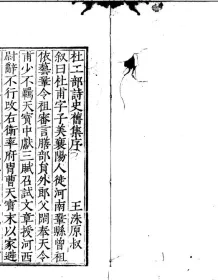 杜工部詩史舊集序
王洙原叔
叙曰杜甫字子美襄陽人徙河南鞏縣曾祖
依藝鞏令祖審言膳部員外郎父閑奉天令
甫少不羈天寶中獻三賦召試文章授河西
尉辭不行改右衛率府胄曹天寶末以家避